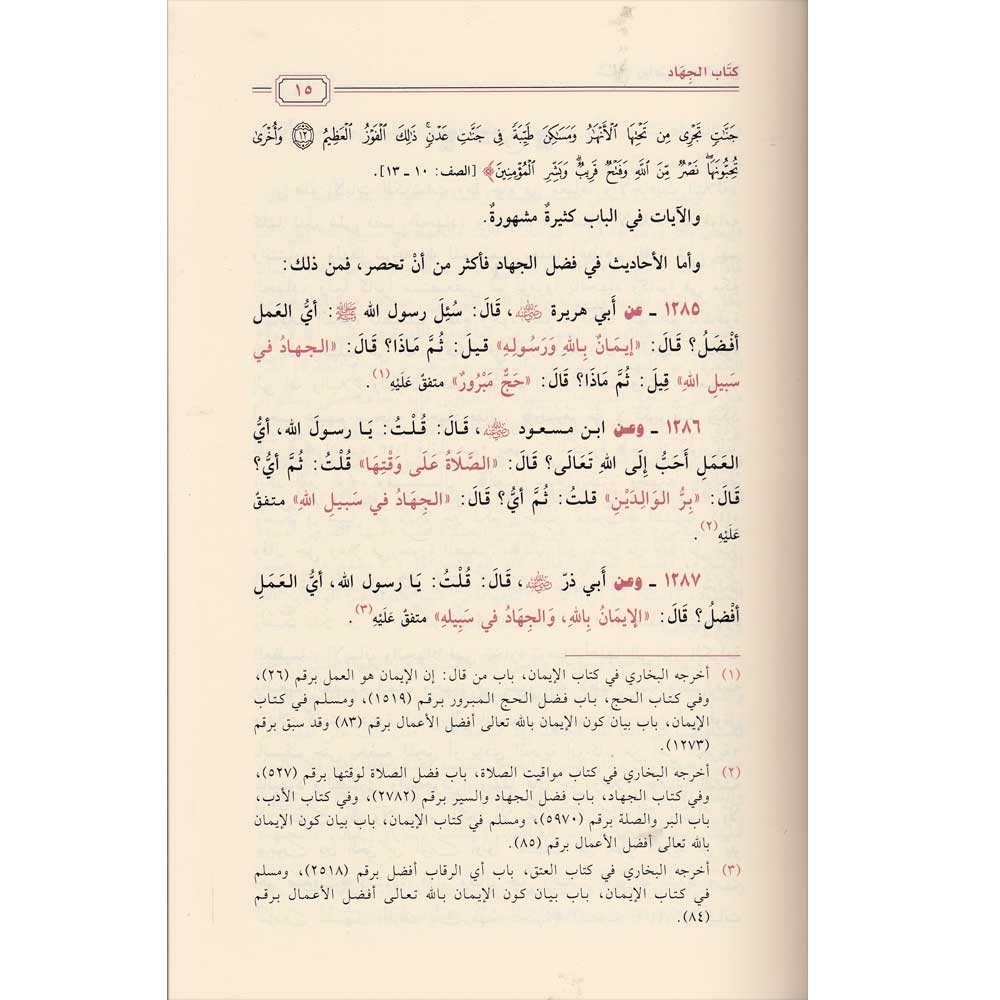 كتَاب الجِهَاد
١٥
جَنَّاتٍ تَجْرِى مِن تَحْتِهَا الْأَنْهَارُ وَمَسَاكِنَ طَيِّبَةً فِى جَنَّاتِ عَدْنٍ ذَلِكَ الْفَوْزُ الْعَظِيمُ ١٢ وَأُخْرَى
تُحِبُّونَهَا نَصْرٌ مِّنَ اللَّهِ وَفَتْحٌ قَرِيبٌ وَبَشِّرِ الْمُؤْمِنِينَ﴾ [الصف: ١٠ ـ ١٣].
والآيات في الباب كثيرةٌ مشهورةٌ.
وأما الأحاديث في فضل الجهاد فأكثر من أنْ تحصر، فمن ذلك:
١٢٨٥ ـ عن أَبي هريرة رضي الله عنه، قَالَ: سُئِلَ رسول الله ﷺ: أيُّ العَمل
أفْضَلُ؟ قَالَ: «إيمَانٌ بِاللهِ وَرَسُولِهِ» قيلَ: ثُمَّ مَاذَا؟ قَالَ: «الجهادُ في
سَبيلِ اللهِ» قِيلَ: ثُمَّ مَاذَا؟ قَالَ: «حَجٌّ مَبْرُورٌ» متفقٌ عَلَيْهِ(١).
١٢٨٦ ـ وعن ابن مسعود رضي الله عنه، قَالَ: قُلْتُ: يَا رسولَ الله، أيُّ
العَمَلِ أحَبُّ إلَى اللهِ تَعَالَى؟ قَالَ: «الصَّلَاةُ عَلَى وَقْتِهَا» قُلْتُ: ثُمَّ أيُّ؟
قَالَ: «بِرُّ الوَالِدَيْنِ» قلتُ: ثُمَّ أيُّ؟ قَالَ: «الجِهَادُ في سَبيلِ اللهِ» متفقٌ
عَلَيْهِ(٢).
١٢٨٧ ـ وعن أَبي ذرّ رضي الله عنه، قَالَ: قُلْتُ: يَا رسول الله، أيُّ العَمَلِ
أفْضلُ؟ قَالَ: «الإيمَانُ بِاللهِ، وَالجِهَادُ في سَبِيلهِ» متفقٌ عَلَيْهِ(٣).
(١) أخرجه البخاري في كتاب الإيمان، باب من قال: إن الإيمان هو العمل برقم (٢٦)،
وفي كتاب الحج، باب فضل الحج المبرور برقم (١٥١٩)، ومسلم في كتاب
الإيمان، باب بيان كون الإيمان بالله تعالى أفضل الأعمال برقم (٨٣) وقد سبق برقم
(١٢٧٣).
(٢) أخرجه البخاري في كتاب مواقيت الصلاة، باب فضل الصلاة لوقتها برقم (٥٢٧)،
وفي كتاب الجهاد، باب فضل الجهاد والسير برقم (٢٧٨٢)، وفي كتاب الأدب،
باب البر والصلة برقم (٥٩٧٠)، ومسلم في كتاب الإيمان، باب بيان كون الإيمان
بالله تعالى أفضل الأعمال برقم (٨٥).
(٣) أخرجه البخاري في كتاب العتق، باب أي الرقاب أفضل برقم (٢٥١٨)، ومسلم
في كتاب الإيمان، باب بيان كون الإيمان بالله تعالى أفضل الأعمال برقم
(٨٤).